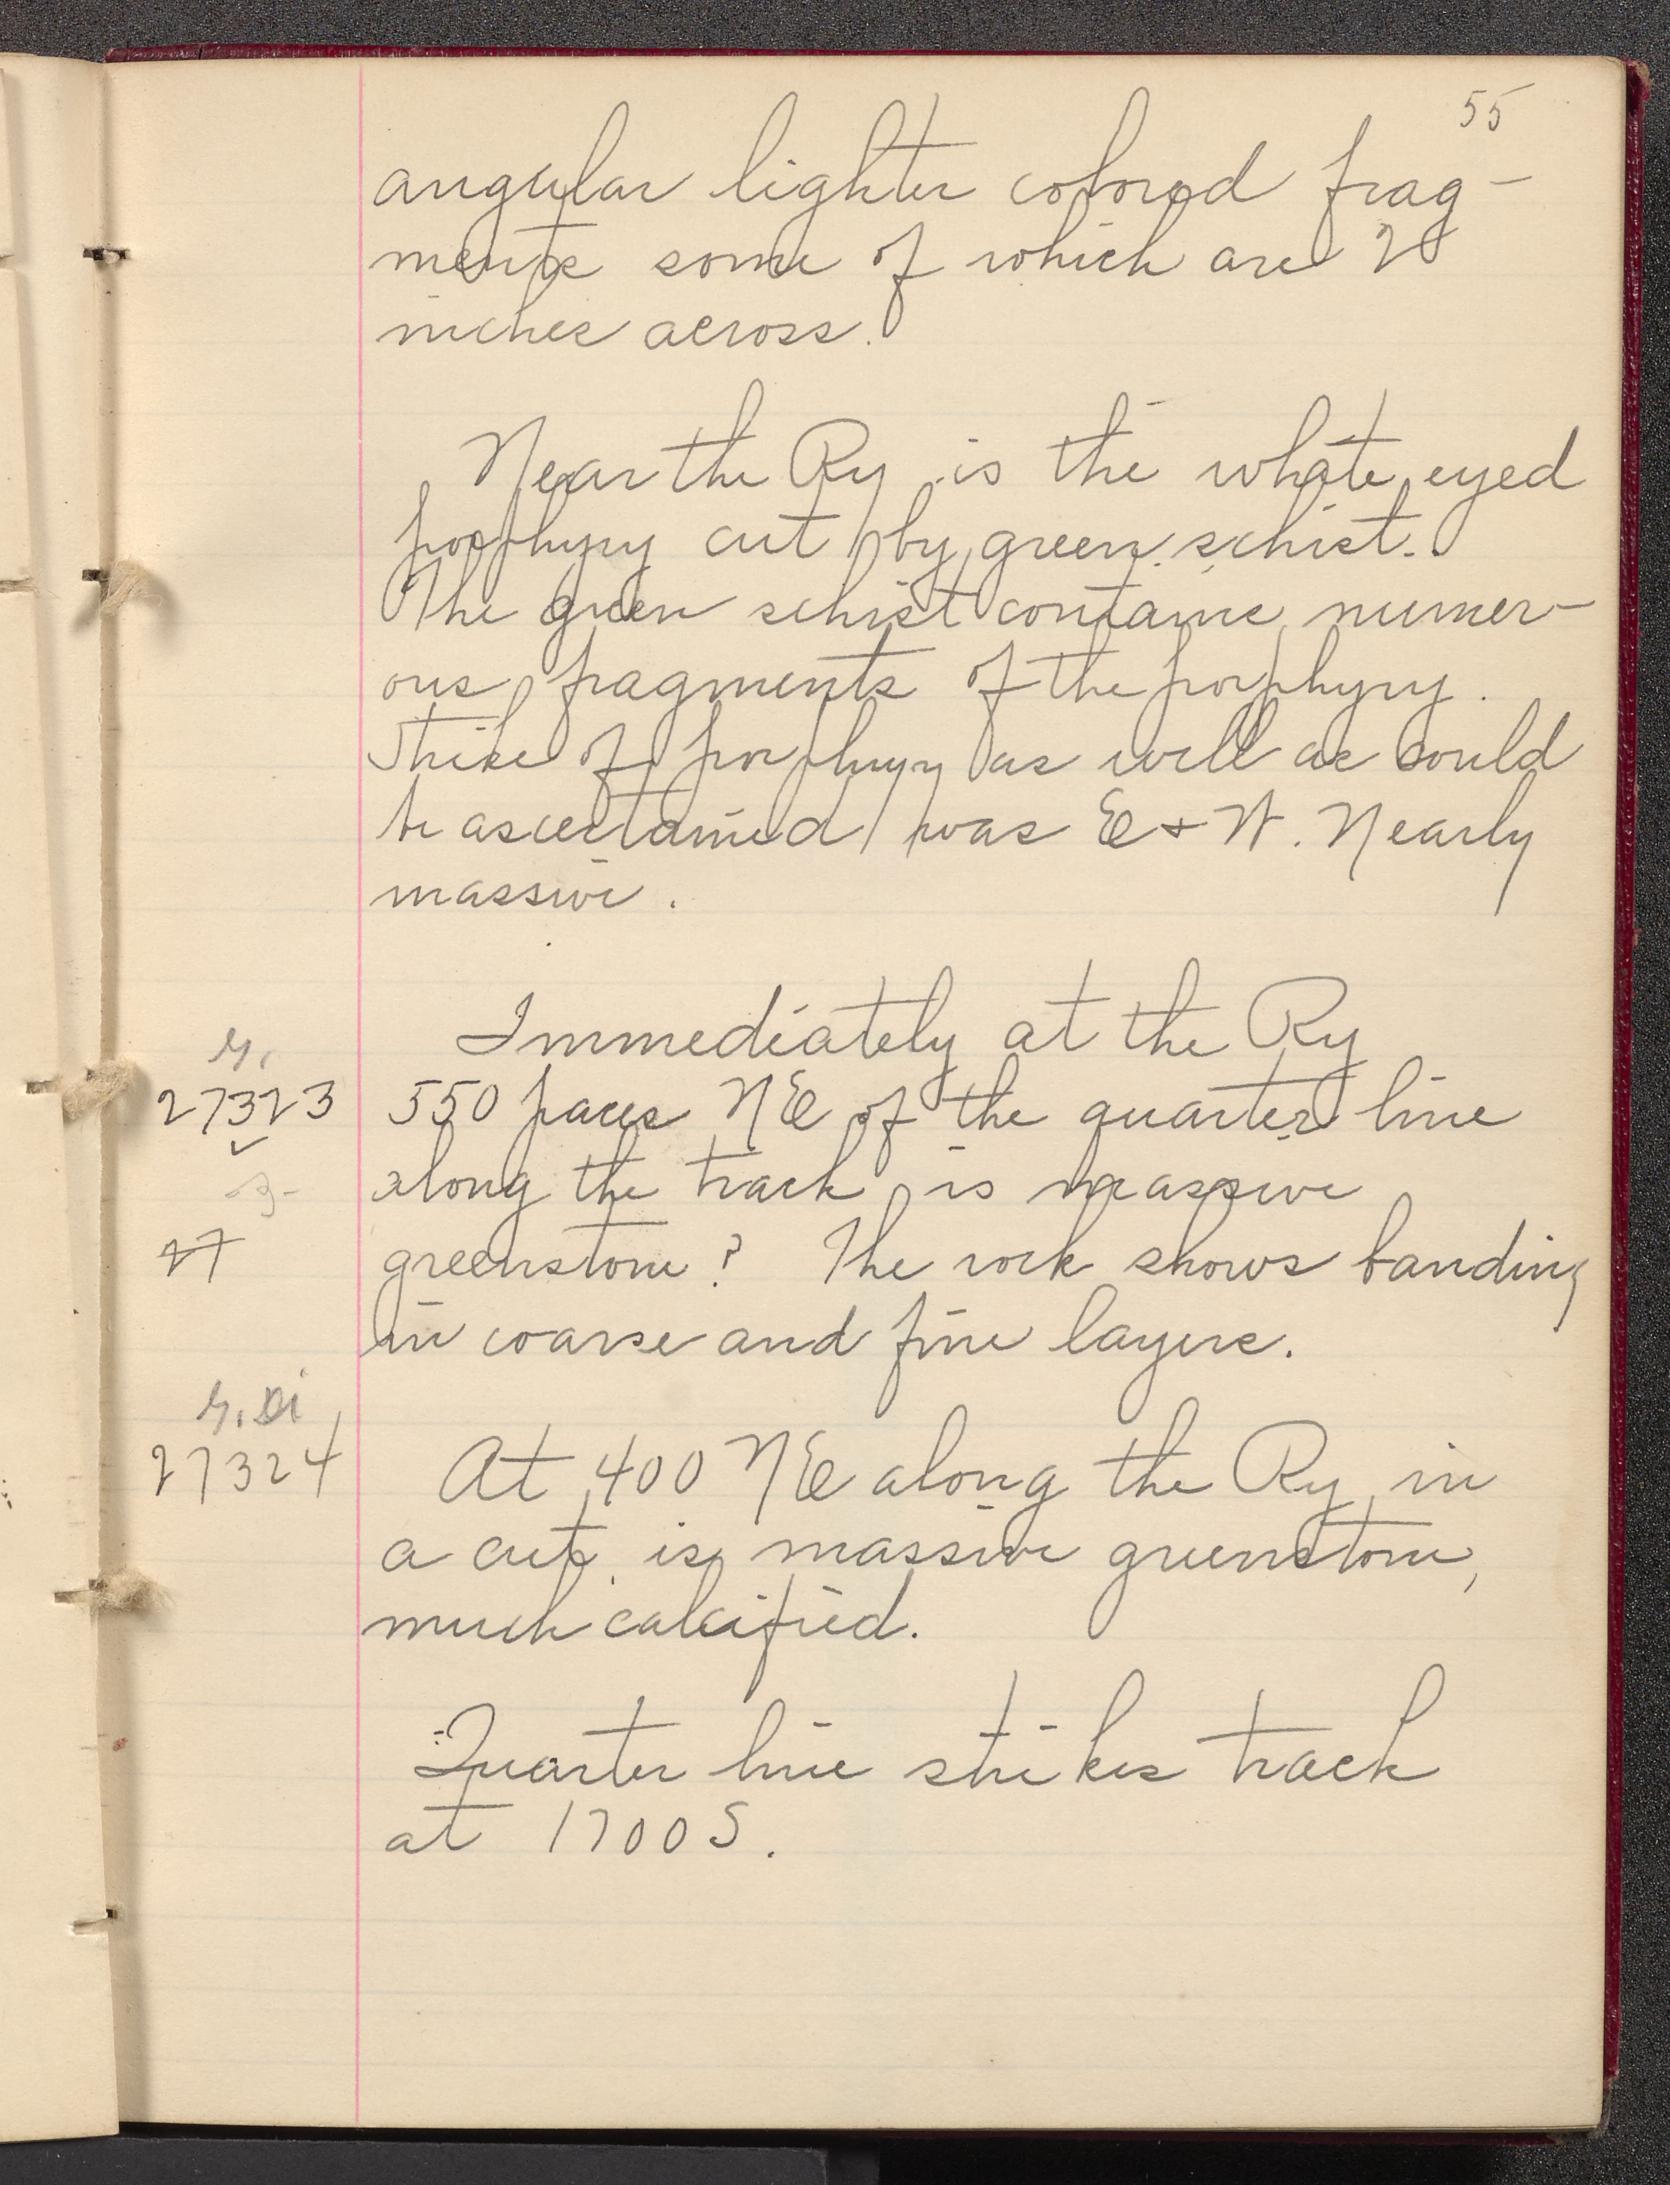 55
angular lighter colored frag-
ments some of which are 28
inches across.
Near the Ry is the white eyed
porphyry cut by green schist.
The green schist contains numer-
ous fragments of the porphyry.
Strike of porphyry as well as could
be ascertained was E & W. Nearly
massive.
Immediately at the Ry
27323 550 paces NE of the quarter line
along the track is massive
27 greenstone? The rock shows banding
in coarse and fine layers.
27324 At 400 NE along the Ry in
a cut is massive greenstone,
much calcified.
Quarter line strikes track
at 1700 S.